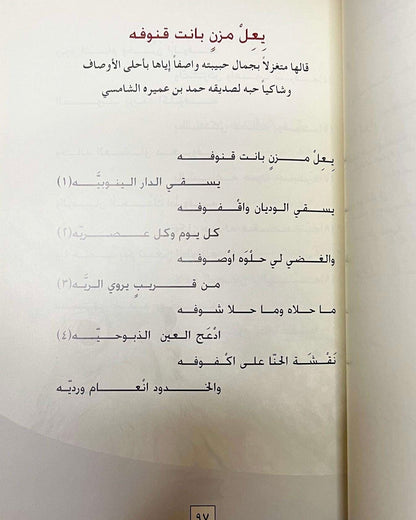 يِعِلْ مزنٍ بانت قنوفه
قالها متغزلاً بجمال حبيبته واصفاً إياها بأحلى الأوصاف
وشاكياً حبه لصديقه حمد بن عميره الشامسي
يِعِلْ مـــزنٍ بانت قنـوفـــه
يســـقي الدار الينوبيَّـــه(١)
يسـقي الوديان واقْـفـوفـه
كل يوم وكل عـصـريّه(٢)
والغضي لي حلْوَه اوْصـوفـه
من قـريـبٍ يروي الريَّـه(٣)
ما حـلاه وما حـلا شـوفـه
ادْعَج العـين الذبوحيّـــه(٤)
نَقْشَـة الحنّا على اكْـفـوفـه
والخـــدود انْعـــام ورديّـه
٩٧